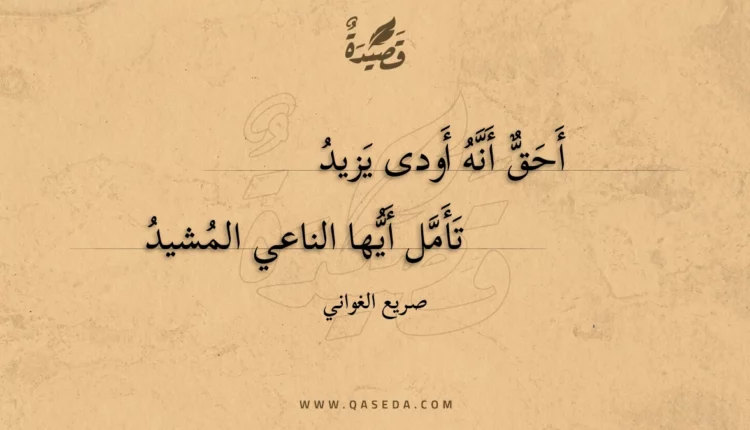 قَصِيدَةٌ
أَحَقٌّ أَنَّهُ أَودى يَزيدُ
تَأَمَّل أَيُّها الناعي المُشيدُ
صريع الغواني
WWW.QASEDA.COM